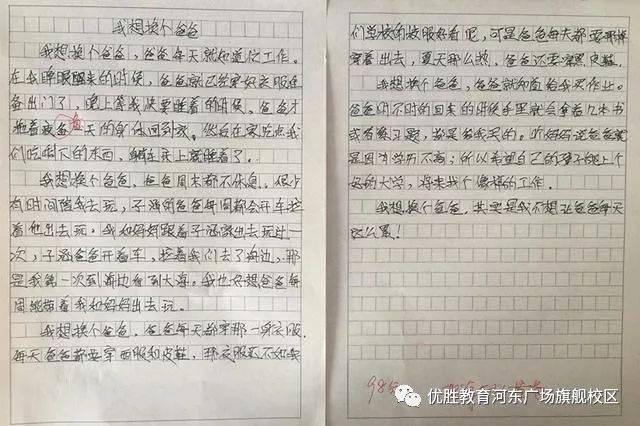 我想换个爸爸
我想换个爸爸，爸爸每天就知道忙工作。
在我睁眼醒来的时候，爸爸就已经穿好衣服准
备出门了，晚上等我快要睡着的时候，爸爸才
拖着疲惫一天的身体回到家。然后在家吃点我
们吃剩下的东西，躺在床上就睡着了。
我想换个爸爸，爸爸周末都不休息，很少
有时间陪我去玩，子涵的爸爸每周都会开车拉
着他出去玩，我和妈妈跟着子涵家出去玩过一
次，子涵爸爸开着车，拉着我们去了海边，那
是我第一次到海边看到大海。我也好想爸爸每
周能带着我和妈妈出去玩。
我想换个爸爸，爸爸每天都穿那一身衣服，
每天爸爸都要穿西服和皮鞋，那衣服还不如我
们学校的校服好看呢，可是爸爸每天都要那样
穿着出去，夏天那么热，爸爸还要穿黑皮鞋。
我想换个爸爸，爸爸就知道给我买作业。
爸爸时不时的回来的时候手里就会拿着几本书
或者练习题，都是给我买的。听妈妈说爸爸就
是因为学历不高；所以希望自己的孩子能上个
好的大学，将来找个像样的工作。
我想换个爸爸，其实是我不想让爸爸每天
这么累！
98分
优胜教育河东广场旗舰校区